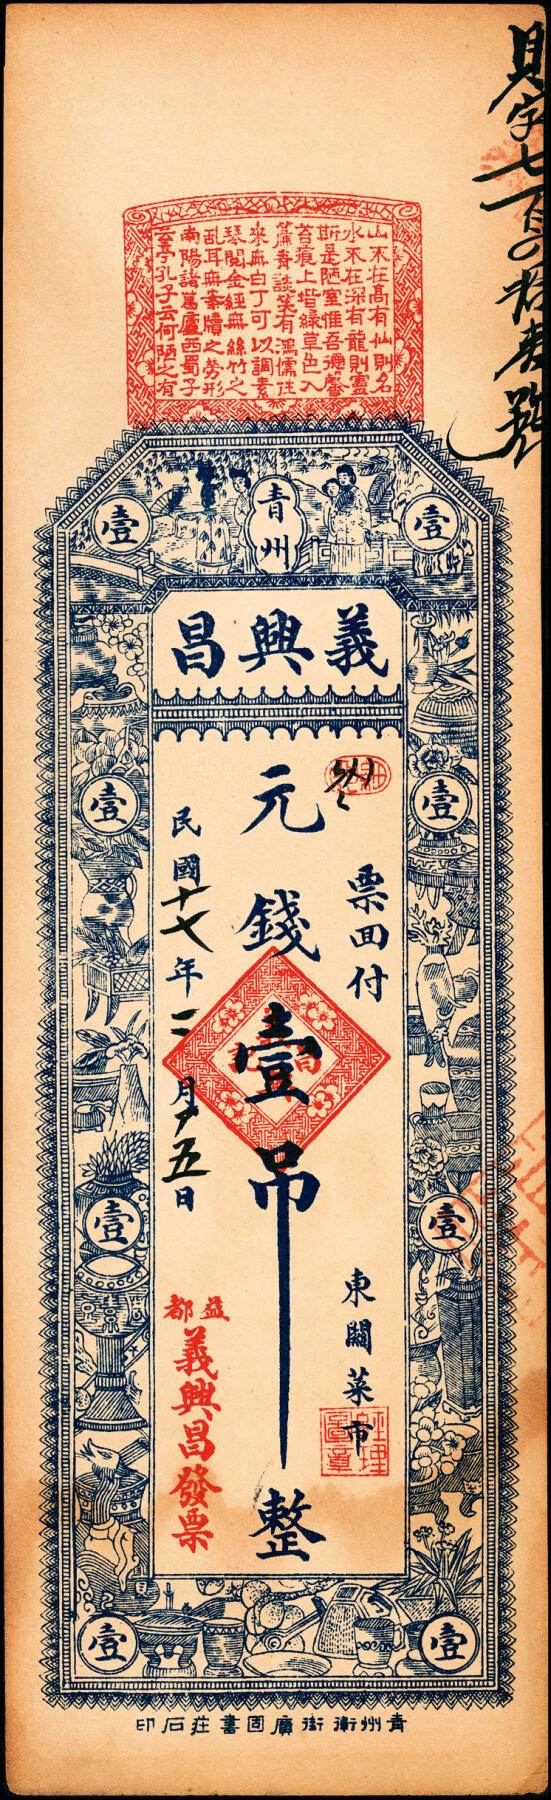 山不在高有仙則名
水不在深有龍則靈
斯是陋室惟吾德馨
苔痕上堦綠草色入
簾青談笑有鴻儒往
来無白丁可以調素
琴閱金經無絲竹之
乱耳無案牘之勞形
南陽諸葛廬西蜀子
雲亭孔子云何陋之有
壹
青州
壹
義興昌
壹
壹
票回付
東關菜市
經理圖章
元錢壹吊整
民國十七年二月十五日
益都
義興昌發票
壹
壹
壹
壹
青州衛街廣固書莊石印